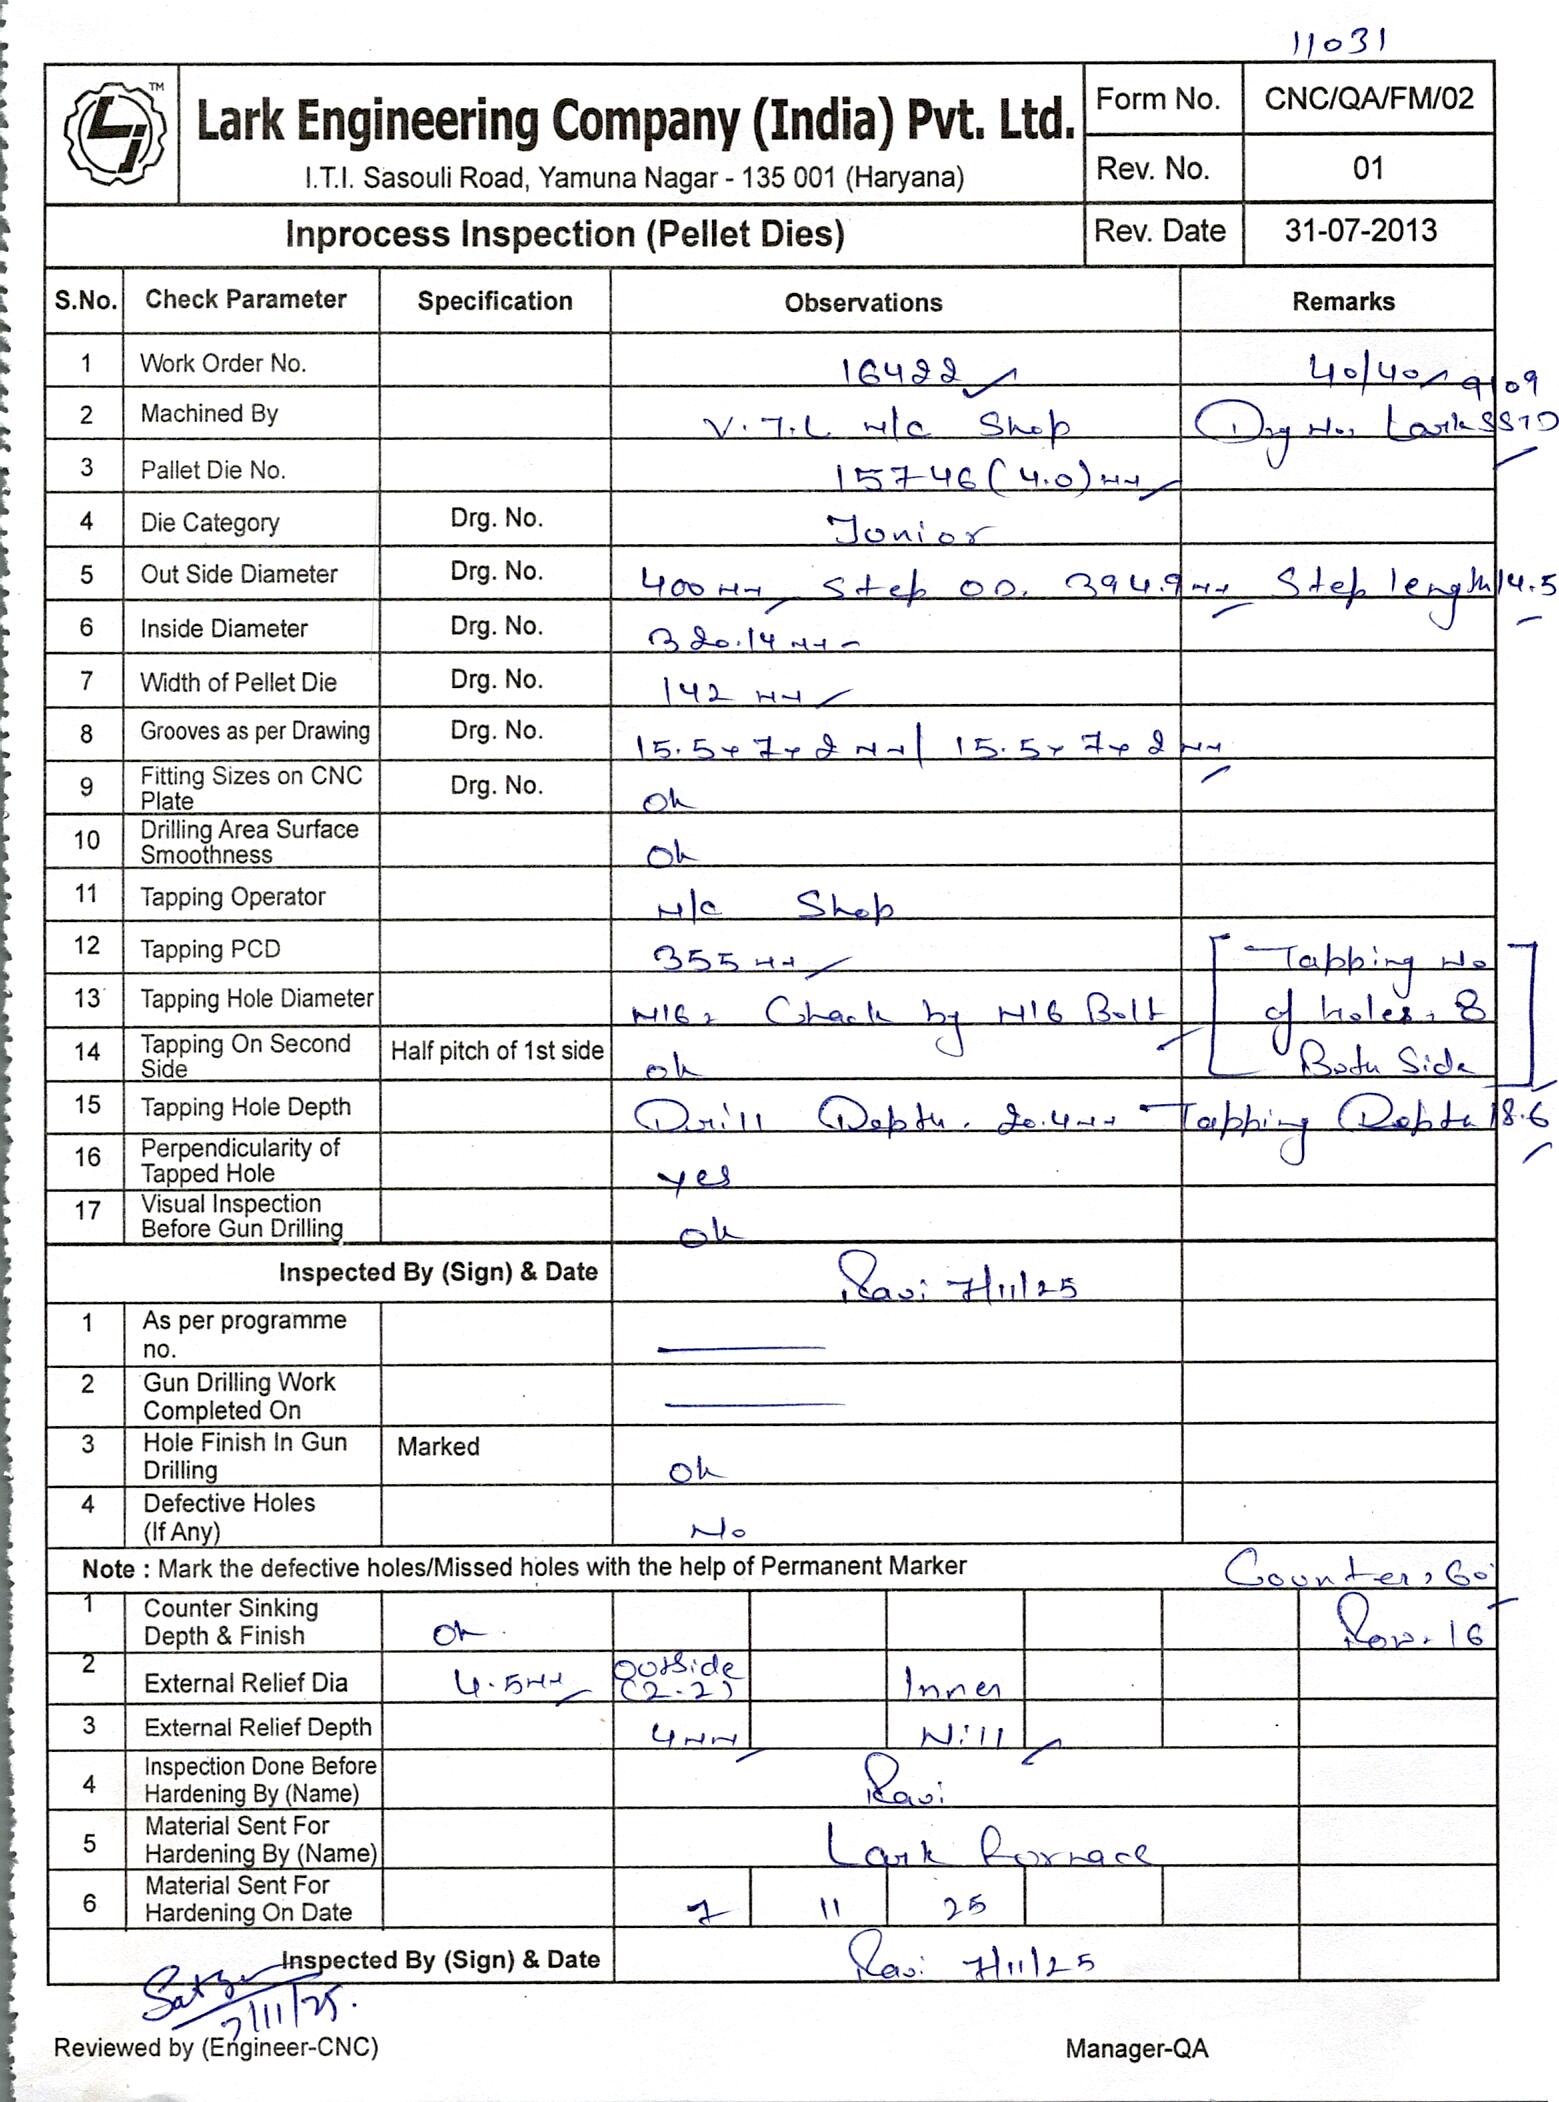 11031
TM
Lark Engineering Company (India) Pvt. Ltd.
I.T.I. Sasouli Road, Yamuna Nagar - 135 001 (Haryana)
Form No. CNC/QA/FM/02
Rev. No. 01
Inprocess Inspection (Pellet Dies)
Rev. Date 31-07-2013
S.No. Check Parameter Specification Observations Remarks
1 Work Order No. 16422 40/40 9/09
2 Machined By V.T.L M/C Shop Drg No. Lark SSTD
3 Pallet Die No. 15746 (4.0) MM
4 Die Category Drg. No. Junior
5 Out Side Diameter Drg. No. 400 MM Step OD. 394.9 MM Step length 14.5
6 Inside Diameter Drg. No. 320.14 MM
7 Width of Pellet Die Drg. No. 142 MM
8 Grooves as per Drawing Drg. No. 15.5x7x2 MM / 15.5x7x2 MM
9 Fitting Sizes on CNC Plate Drg. No. Ok
10 Drilling Area Surface Smoothness Ok
11 Tapping Operator M/C Shop
12 Tapping PCD 355 MM [Tapping No
13 Tapping Hole Diameter M16, Chack by M16 Bolt of holes, 8
14 Tapping On Second Side Half pitch of 1st side ok Both Side]
15 Tapping Hole Depth Drill Depth. 20.4 MM Tapping Depth 18.6
16 Perpendicularity of Tapped Hole yes
17 Visual Inspection Before Gun Drilling ok
Inspected By (Sign) & Date Ravi 7/11/25
1 As per programme no.
2 Gun Drilling Work Completed On
3 Hole Finish In Gun Drilling Marked Ok
4 Defective Holes (If Any) No
Note : Mark the defective holes/Missed holes with the help of Permanent Marker Counter, 60°
1 Counter Sinking Depth & Finish Ok Row. 16
2 External Relief Dia 4.5 MM Outside (2.2) Inner
3 External Relief Depth 4 MM Nill
4 Inspection Done Before Hardening By (Name) Ravi
5 Material Sent For Hardening By (Name) Lark Furnace
6 Material Sent For Hardening On Date 7 11 25
Inspected By (Sign) & Date Ravi 7/11/25
7/11/25.
Reviewed by (Engineer-CNC) Manager-QA